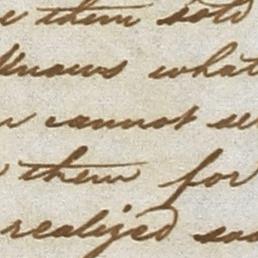 them sold
knows what
cannot se
them for
realized soo